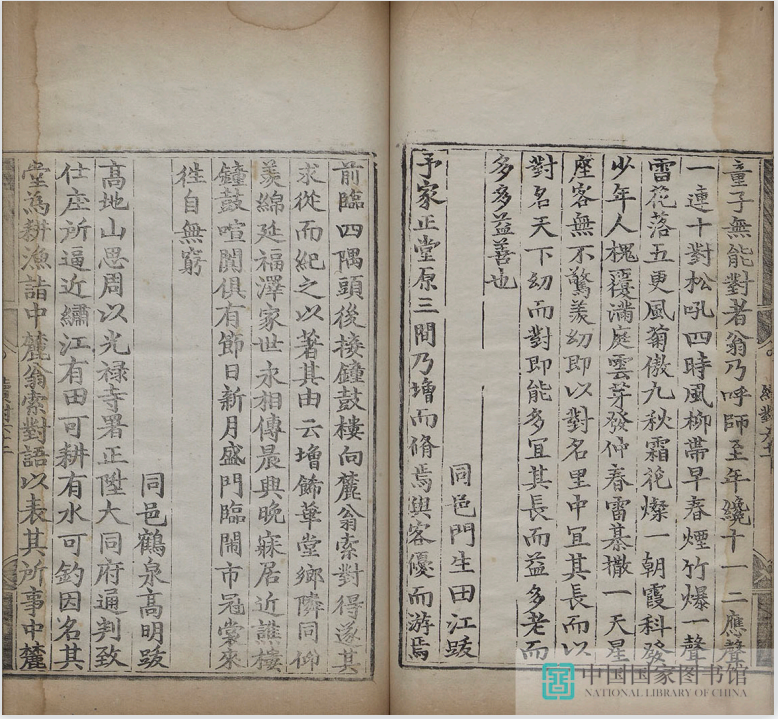 童子無能對者翁乃呼師至年纔十一二應聲
一連十對松吼四時風柳帶早春煙竹爆一聲
雷花落五更風菊傲九秋霜花燦一朝霞科發
少年人槐覆滿庭雲芽發仲春雷棊撒一天星
座客無不驚羨幼即以對名里中宜其長而以
對名天下幼而對即能多宜其長而益多老而
多多益善也
同邑門生田江䟦
予家正堂原三間乃增而脩焉與客優而游焉
前臨四隅頭後接鐘鼓樓向麓翁索對得遂其
求從而紀之以著其由云增餙華堂鄉隣同仰
羨綿延福澤家世永相傳晨興晚寐居近譙樓
鐘鼓喧闐俱有節日新月盛門臨鬧市冠裳來
徃自無窮
同邑鶴泉高明䟦
高地山思周以光祿寺署正陞大同府通判致
仕座所逼近繡江有田可耕有水可釣因名其
堂為耕漁詣中麓翁索對語以表其所事中麓
中国国家图书馆
NATIONAL LIBRARY OF CHINA